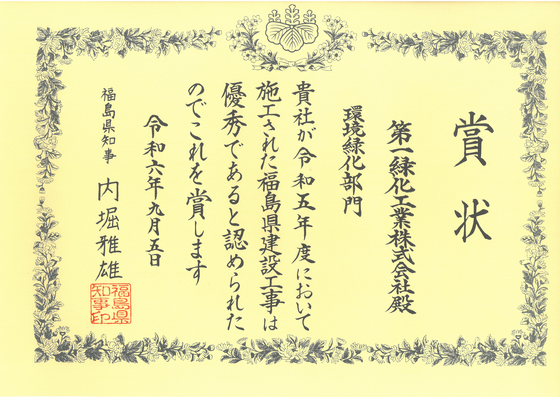 賞状
第一緑化工業株式会社殿
環境緑化部門
貴社が令和五年度において
施工された福島県建設工事は
優秀であると認められた
のでこれを賞します
令和六年九月五日
福島県知事 内堀雅雄
福島県
知事印